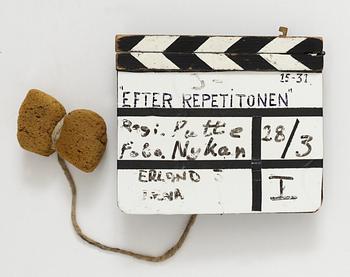 15-31
"EFTER REPETITONEN"
Regi. Putte
Foto. Nykan
28/3
ERLAND
LENA
I